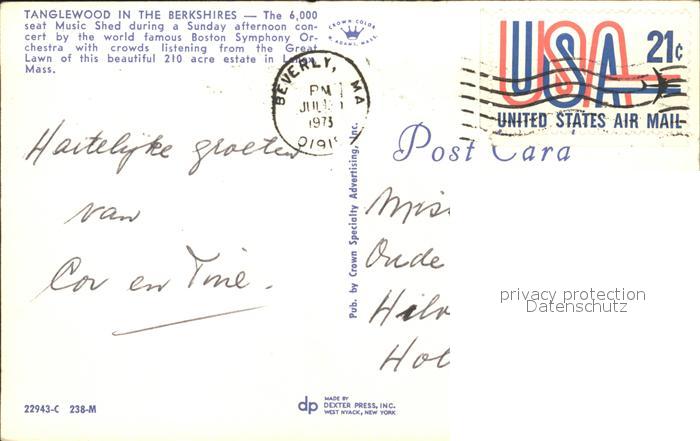 TANGLEWOOD IN THE BERKSHIRES — The 6,000
seat Music Shed during a Sunday afternoon con-
cert by the world famous Boston Symphony Or-
chestra with crowds listening from the Great
Lawn of this beautiful 210 acre estate in
Mass.
CROWN COLOR
N. ADAMS, MASS.
BEVERLY, MA
PM
JUL
1973
USA 21c
UNITED STATES AIR MAIL
Post Card
Hartelijke groeten
van
Cor en Tine.
Pub. by Crown Specialty Advertising, Inc.
Oude
privacy protection
Datenschutz
22943-C 238-M
dp MADE BY
DEXTER PRESS, INC.
WEST NYACK, NEW YORK